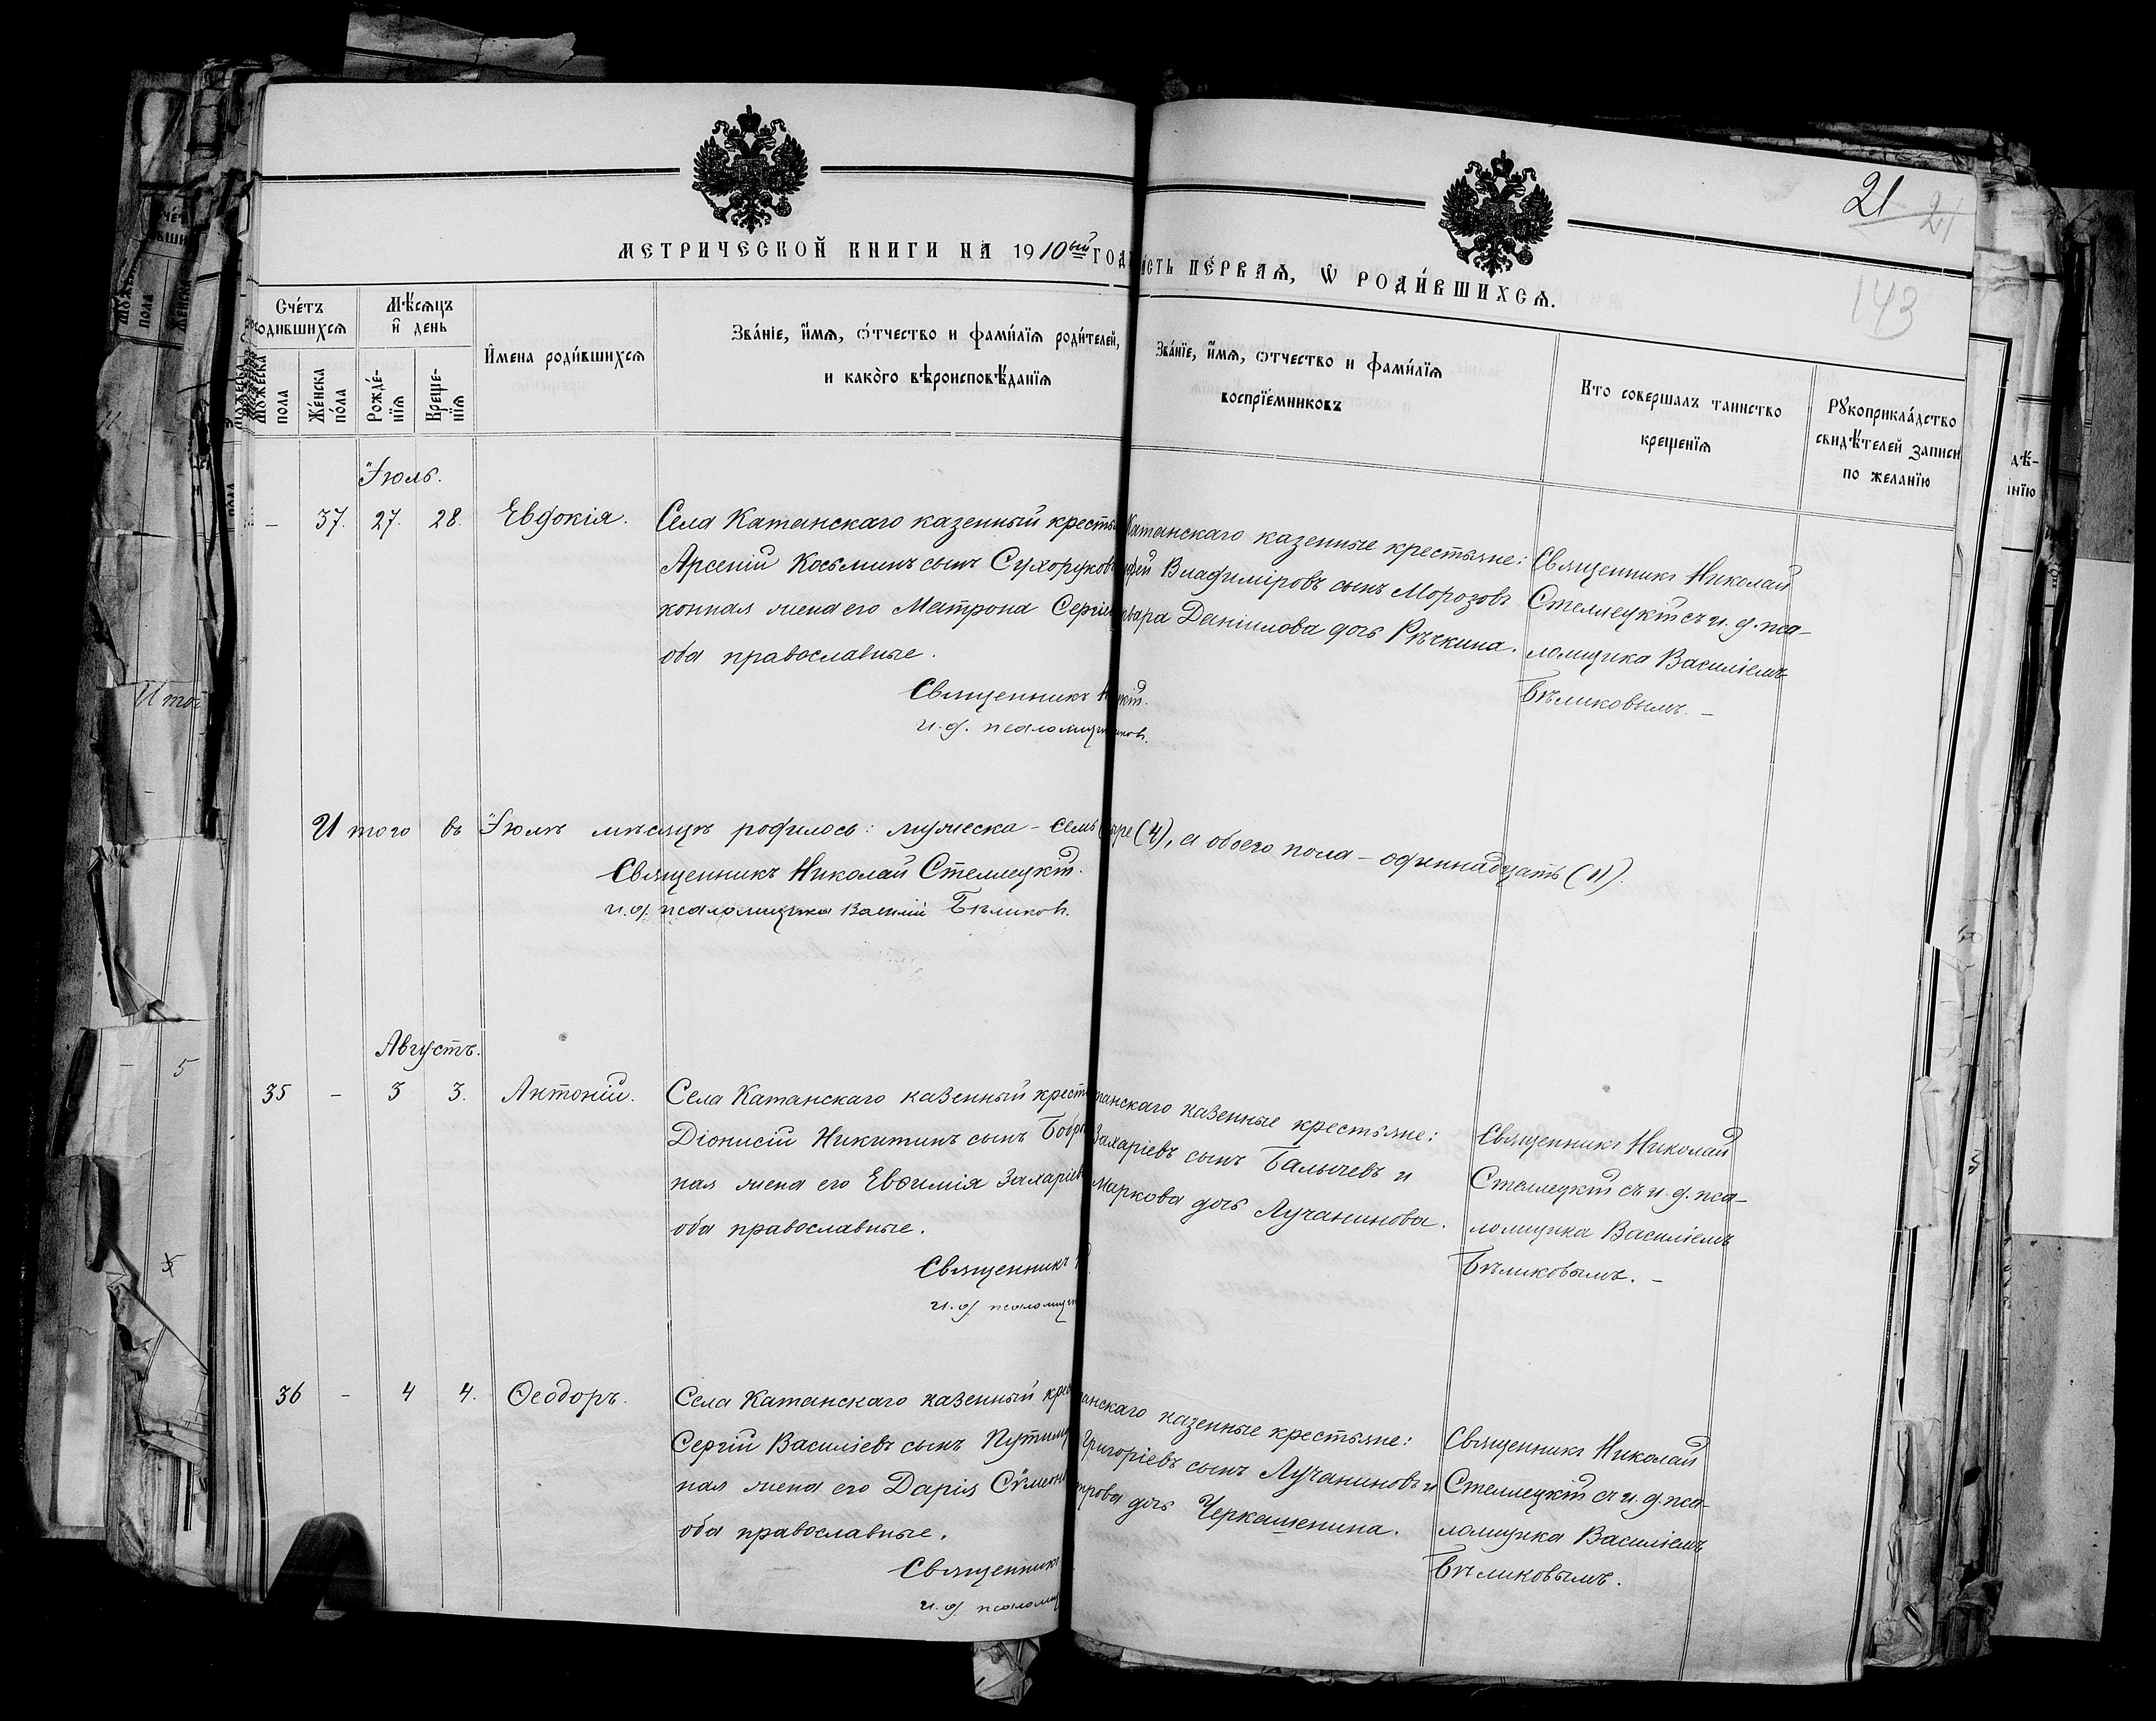 21 21
143
МЕТРИЧЕСКОЙ КНИГИ НА 1910ый ГОДЪ
ЧАСТЬ ПЕ́РВАЯ, Ѡ РОДИ́ВШИХСЯ.
Сче́тъ родившихся
Мѣ́сяцъ и день
Имена роди́вшихся
Зва́ніе, и́мя, о́тчество и фами́лія роди́телей,
и како́го вѣроисповѣ́данія
Зва́ніе, и́мя, отчество и фами́лія
воспріе́мниковъ
Кто совершалъ таинство
крещенія
Рукоприкла́дство
свидѣ́телей записи
по желанію
Мужеска пола
Же́нска по́ла
Рожде́-нія
Креще-нія
Іюль.
– 37. 27. 28. Евдокія.
Села Катанскаго казенный кресть
Арсеній Косьминъ сынъ Сухоруков
конная жена его Матрона Сергіе
оба православные.
Священникъ Н
и. д. псаломщ
Катанскаго казенные крестьяне:
Владиміровъ сынъ Морозовъ
вара Даніилова дочь Рѣчкина.
Священникъ Николай
Стеллецкій съ и. д. пса-
ломщика Василіемъ
Бѣликовымъ. –
Итого въ Іюлѣ мѣсяцѣ родилось: мужеска – семь
ыре (4), а обоего пола – одиннадцать (11).
Священникъ Николай Стеллецкій.
и. д. псаломщика Василій Бѣликов.
Августъ.
35 – 3 3. Антоній.
Села Катанскаго казенный крест
Діонисій Никитинъ сынъ Бобр
ная жена его Евѳимія Захаріев
оба православные.
Священникъ Н
и. д. псаломщ
танскаго казенные крестьяне:
Захаріевъ сынъ Балычевъ и
Маркова дочь Лучанинова.
Священникъ Николай
Стеллецкій съ и. д. пса-
ломщика Василіемъ
Бѣликовымъ. –
36 – 4 4. Ѳеодоръ.
Села Катанскаго казенный крес
Сергій Василіевъ сынъ Путими
ная жена его Дарія Сѵмеон
оба православные.
Священникъ
и. д. псаломщ
танскаго казенные крестьяне:
Григоріевъ сынъ Лучаниновъ и
трова дочь Черкашенина.
Священникъ Николай
Стеллецкій съ и. д. пса-
ломщика Василіемъ
Бѣликовымъ.